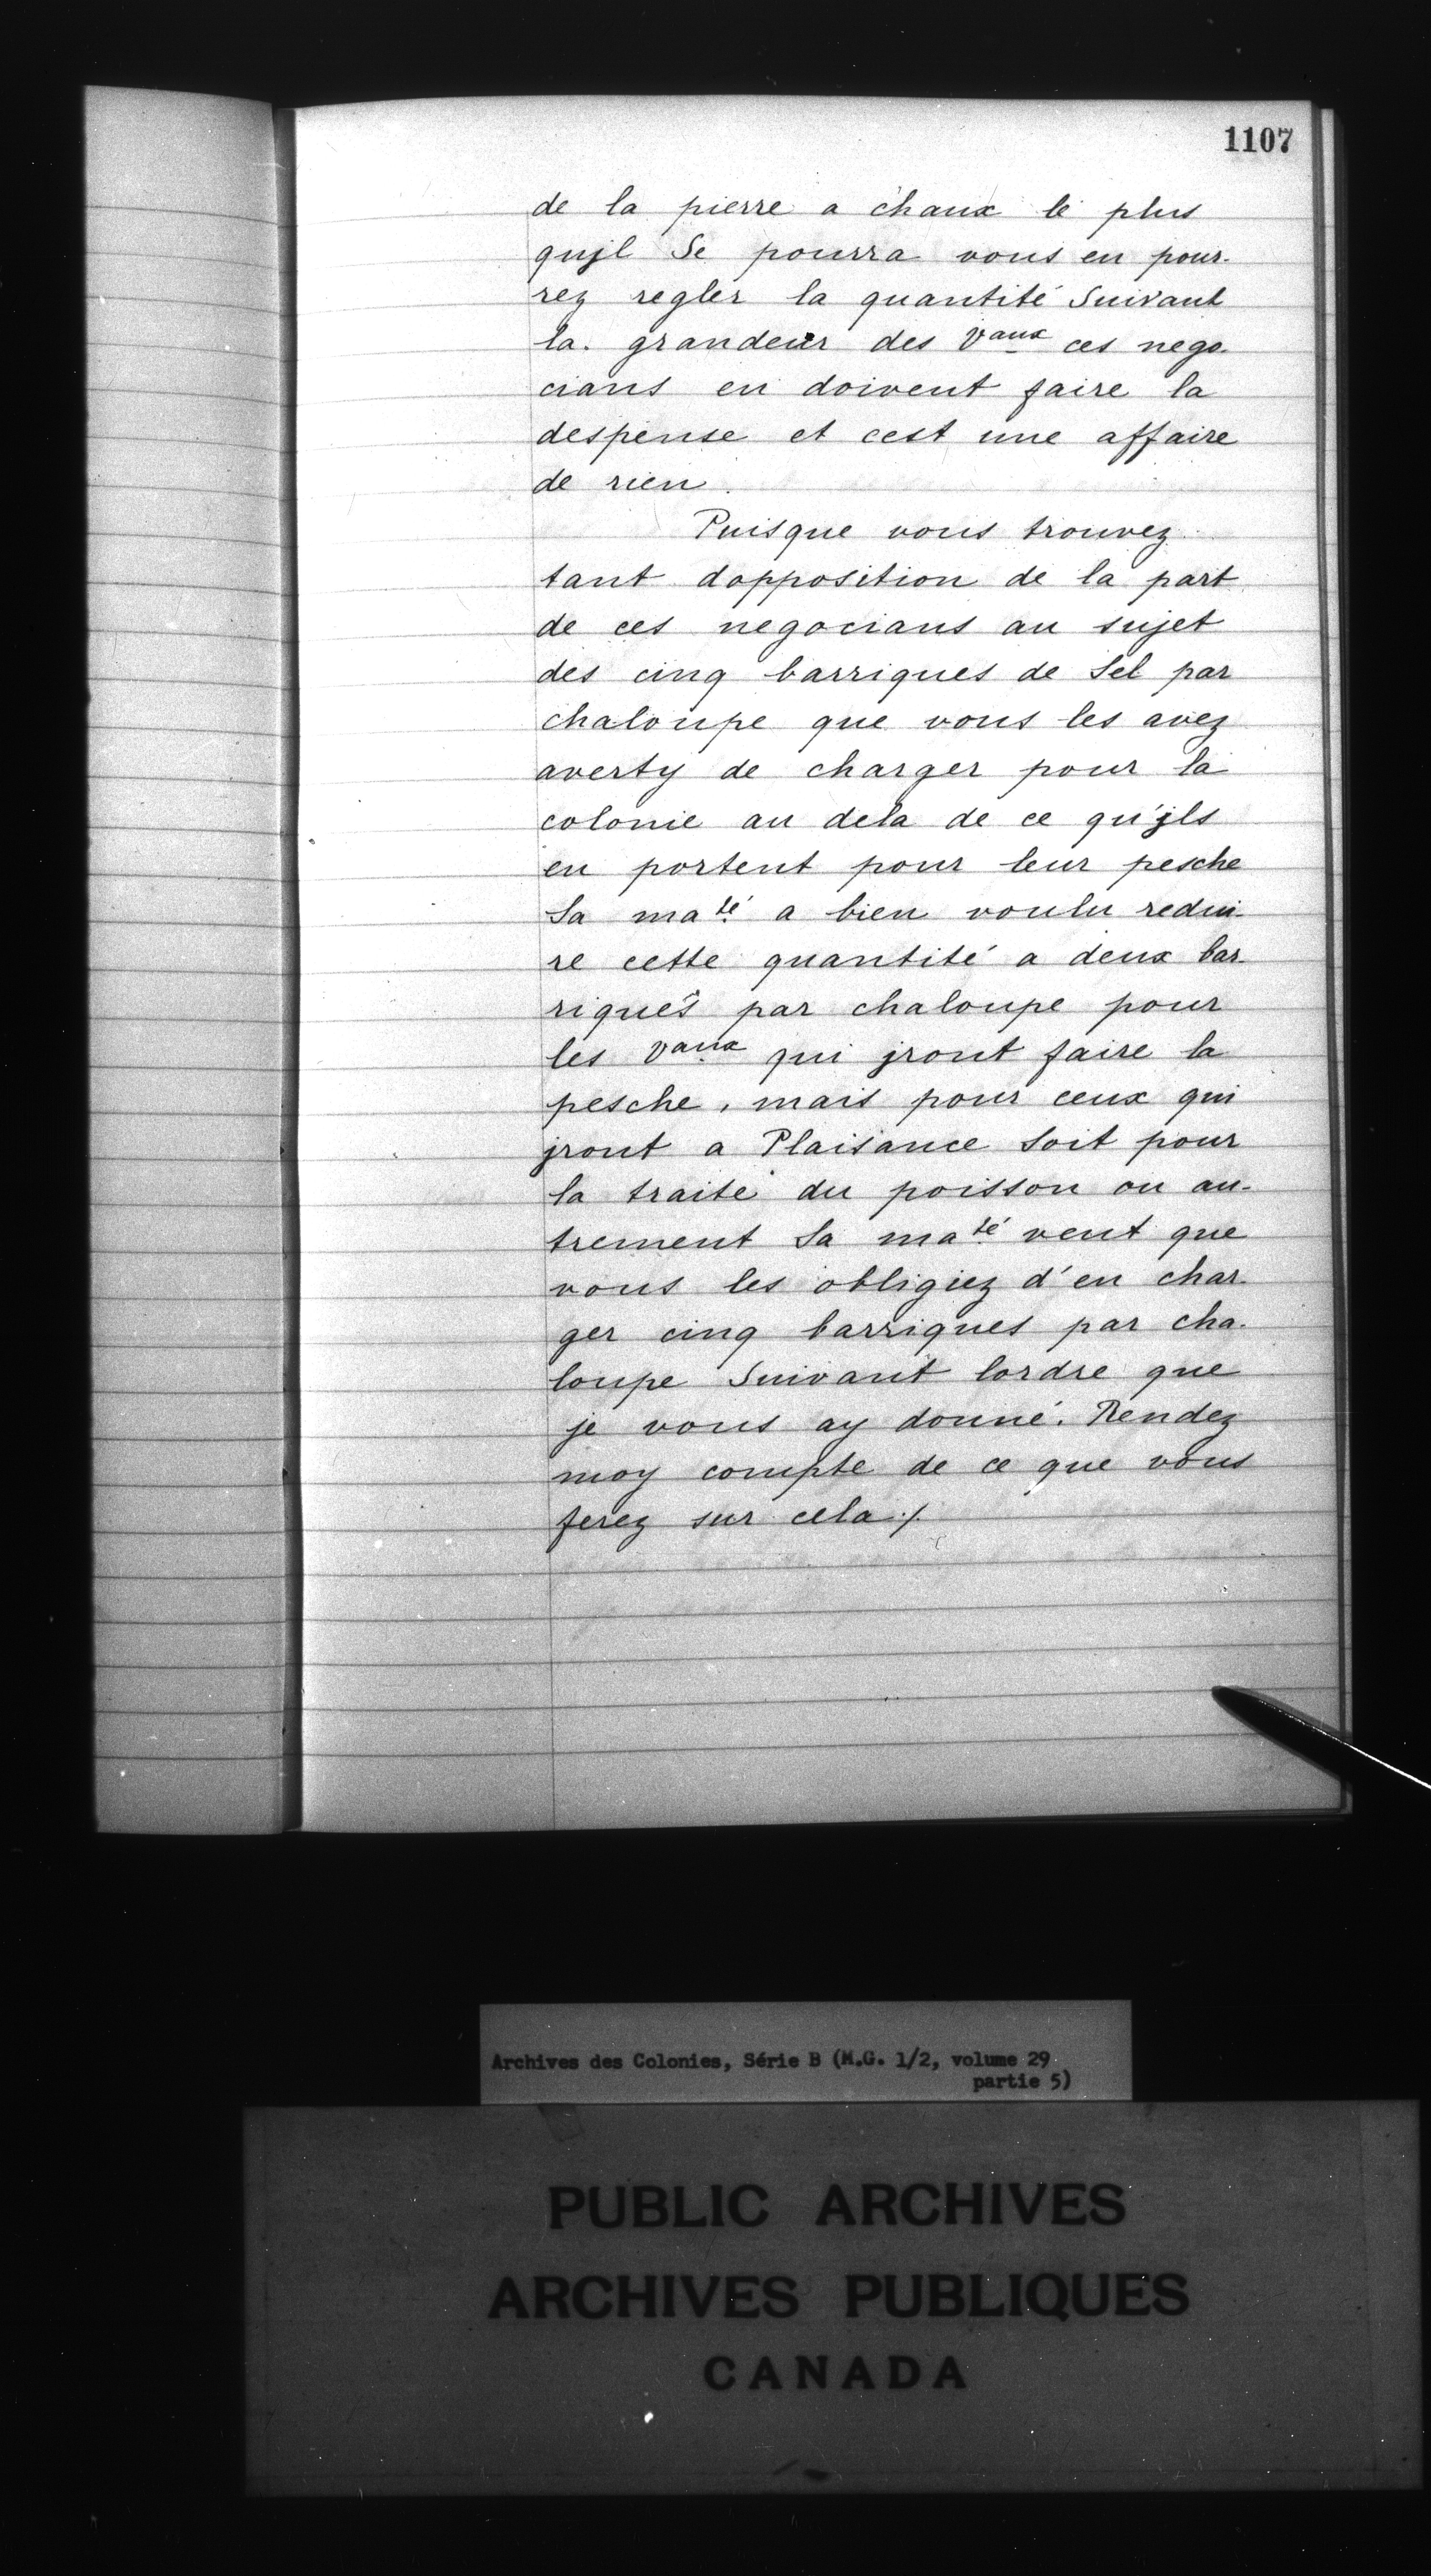 1107
de la pierre a chaux le plus
qujl Se pourra vous en pour-
rez regler la quantité Suivant
la grandeur des Vaux ces nego-
cians en doivent faire la
despense et cest une affaire
de rien.
Puisque vous trouvez
tant dopposition de la part
de ces negocians au sujet
des cinq barriques de Sel par
chaloupe que vous les avez
averty de charger pour la
colonie au dela de ce qu'jls
en portent pour leur pesche
Sa maté a bien voulu redui-
re cette quantité a deux bar-
riques par chaloupe pour
les Vaux qui jront faire la
pesche, mais pour ceux qui
jront a Plaisance Soit pour
la traite du poisson ou au-
trement Sa maté veut que
vous les obligiez d'en char-
ger cinq barriques par cha-
loupe Suivant lordre que
je vous ay donné. Rendez
moy compte de ce que vous
ferez sur cela ./.
Archives des Colonies, Série B (M.G. 1/2, volume 29
partie 5)
PUBLIC ARCHIVES
ARCHIVES PUBLIQUES
CANADA